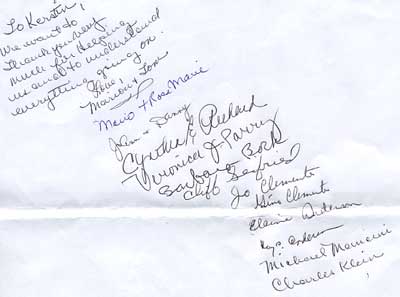 To Kerstin,
We want to
thank you very
much for helping
us and to understand
everything going on.
Love,
Marion & Tom
Mario + Rose Marie
John & Danny
Cynthia & Richard
Veronica & Parry
Barbara Bock
Cliff Seifried
Jo Clemente
Gino Clemente
Elaine Anderson
Ray Anderson
Michael Mancini
Charles Klein,